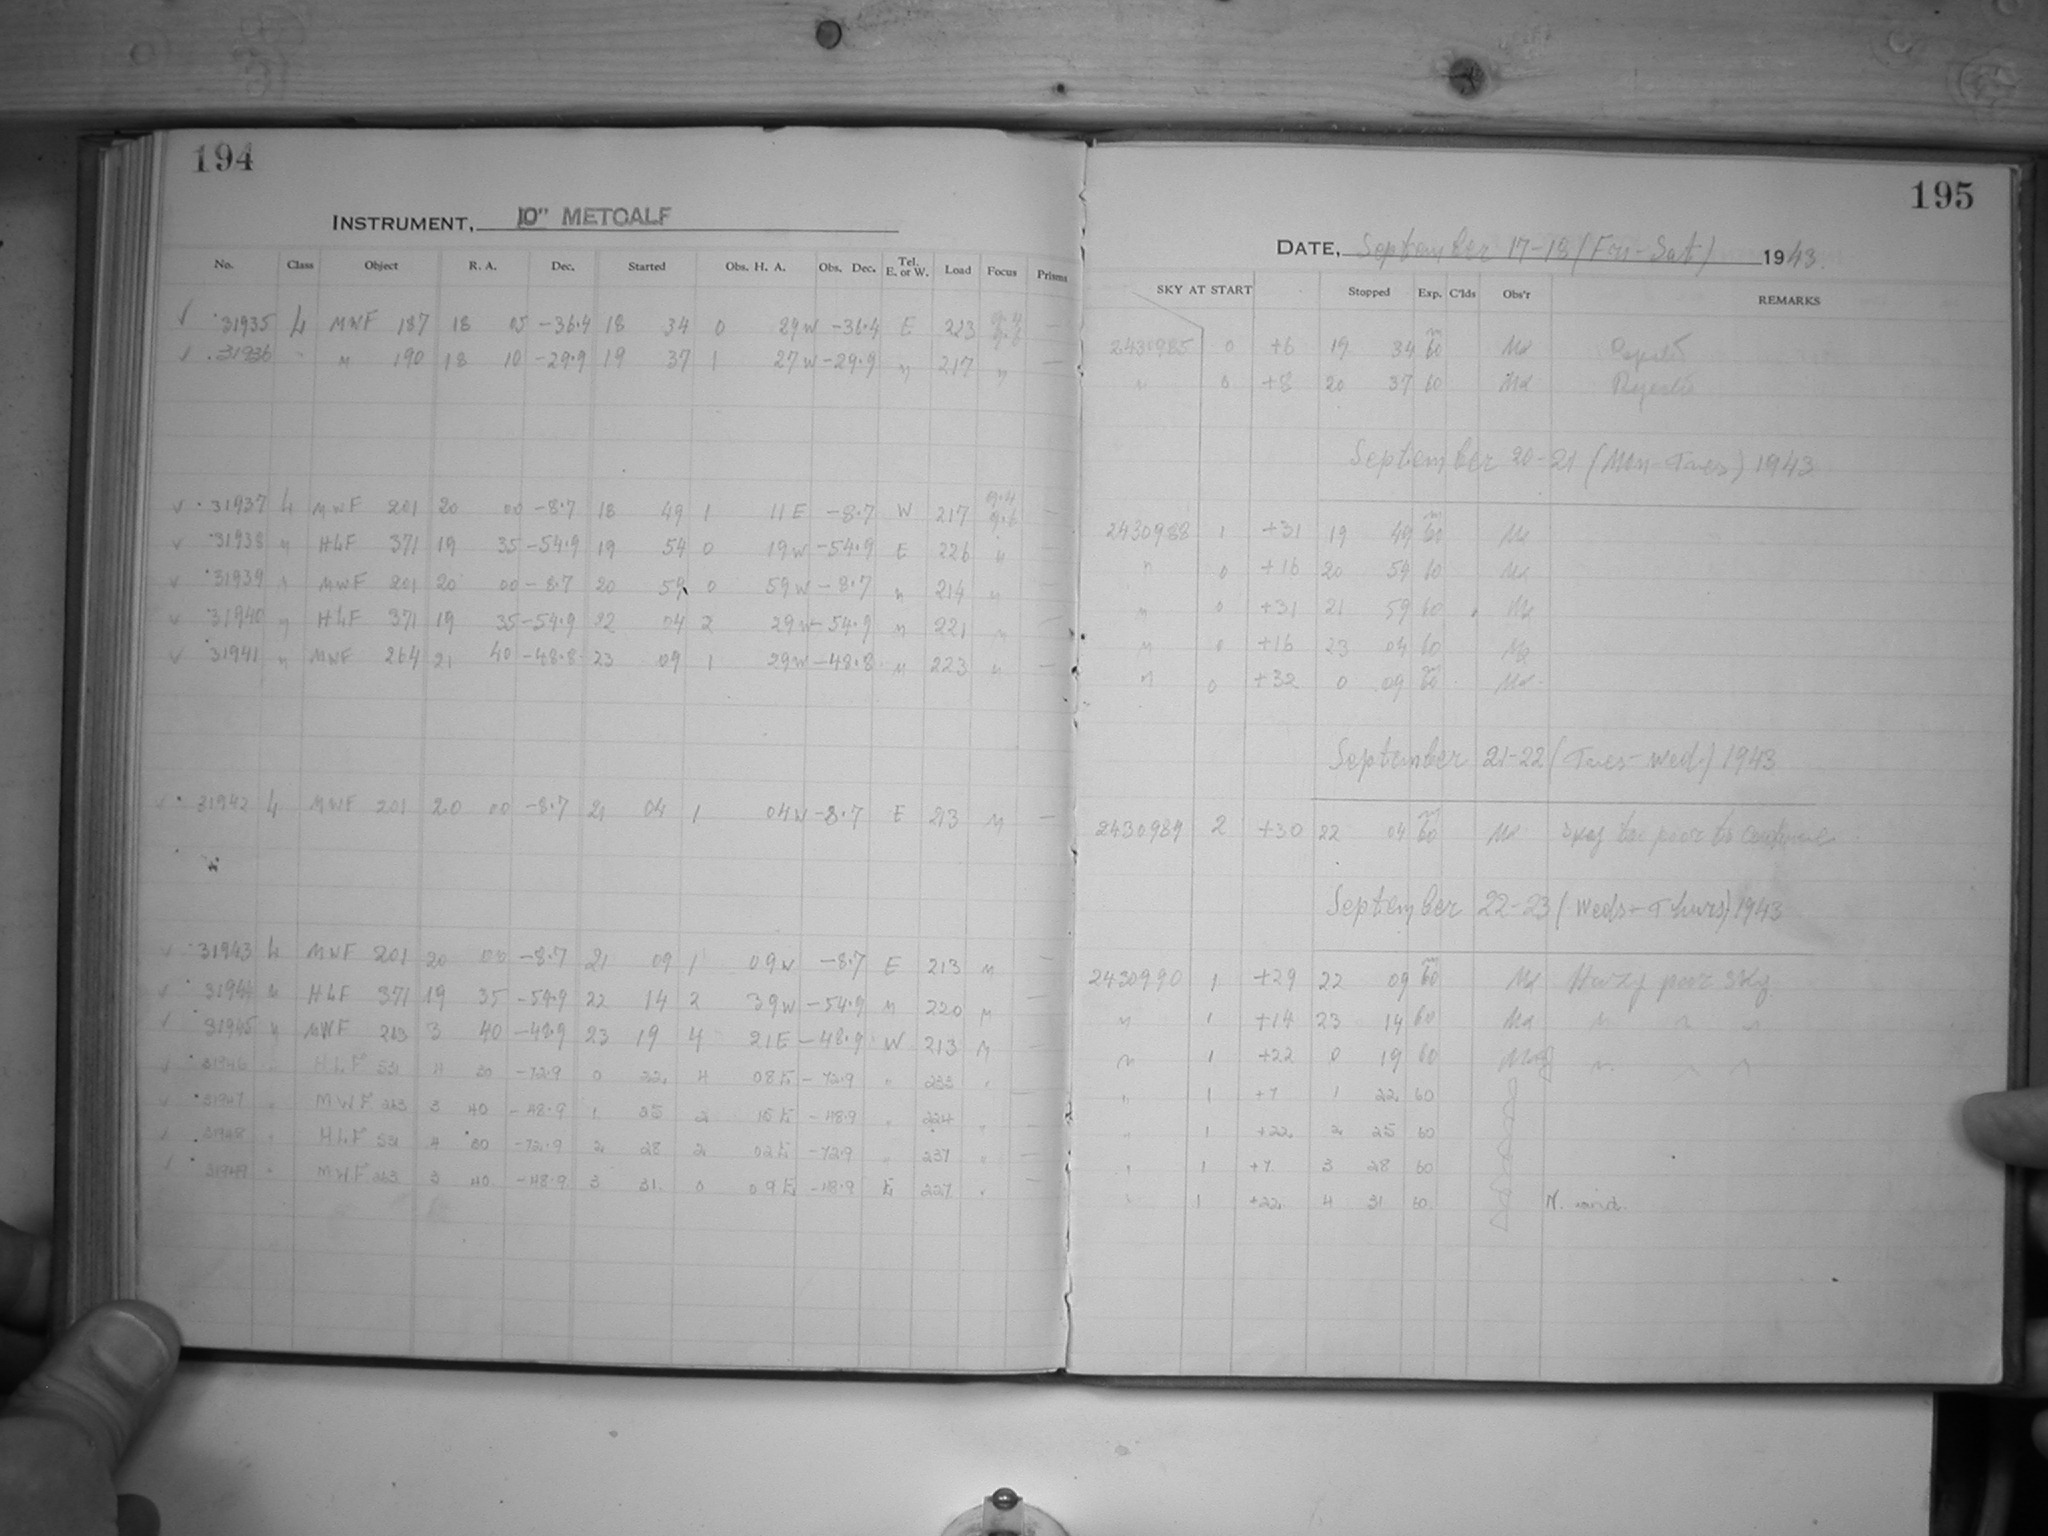 194
INSTRUMENT, 10" METCALF
No. Class Object R. A. Dec. Started Obs. H. A. Obs. Dec. Tel. E. or W. Load Focus Prisms
✓ 31935 L MWF 187 18 05 -36.4 18 34 0 29W -36.4 E 223 9.4 9.6 —
✓ 31936 " " 190 18 10 -29.9 19 37 1 27W -29.9 " 217 " —
✓ 31937 L MWF 201 20 00 -8.7 18 49 1 11E -8.7 W 217 9.4 9.6 —
✓ 31938 " HLF 371 19 35 -54.9 19 54 0 19W -54.9 E 226 " —
✓ 31939 " MWF 201 20 00 -8.7 20 59 0 59W -8.7 " 214 " —
✓ 31940 " HLF 371 19 35 -54.9 22 04 2 29W -54.9 " 221 " —
✓ 31941 " MWF 264 21 40 -48.8 23 09 1 29W -48.8 " 223 " —
✓ 31942 L MWF 201 20 00 -8.7 21 04 1 04W -8.7 E 213 " —
✓ 31943 L MWF 201 20 00 -8.7 21 09 1 09W -8.7 E 213 " —
✓ 31944 " HLF 371 19 35 -54.9 22 14 2 39W -54.9 " 220 " —
✓ 31945 " MWF 263 3 40 -48.9 23 19 4 21E -48.9 W 213 " —
✓ 31946 " HLF 531 4 30 -72.9 0 22 4 08E -72.9 " 233 " —
✓ 31947 " MWF 263 3 40 -48.9 1 25 2 15E -48.9 " 224 " —
✓ 31948 " HLF 531 4 30 -72.9 2 28 2 02E -72.9 " 237 " —
✓ 31949 " MWF 263 3 40 -48.9 3 31 0 09E -48.9 E 227 " —
195
DATE, September 17-18 (Fri-Sat) 1943.
SKY AT START Stopped Exp. C'lds Obs'r REMARKS
2430985 0 +6 19 34 60 Md
" 0 +8 20 37 60 Md
September 20-21 (Mon-Tues) 1943
2430988 1 +31 19 49 60 Md
" 0 +16 20 54 60 Md
" 0 +31 21 59 60 Md
" 0 +16 23 04 60 Md
" 0 +32 0 09 60 Md
September 21-22 (Tues-Wed.) 1943
2430989 2 +30 22 04 60 Md Sky too poor to continue
September 22-23 (Weds-Thurs) 1943
2430990 1 +29 22 09 60 Md Hazy poor sky
" 1 +14 23 14 60 Md " " "
" 1 +22 0 19 60 " " "
" 1 +7 1 22 60
" 1 +22 2 25 60
" 1 +7 3 28 60
" 1 +22 4 31 60 N. wind.